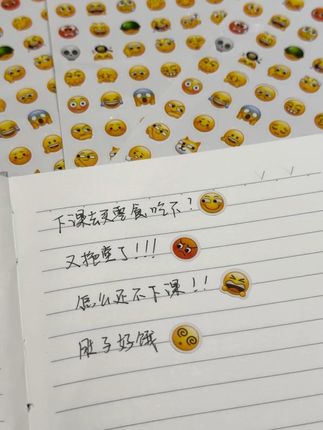 下课去买零食吃不?
又拖堂了!!!
怎么还不下课!!
肚子好饿